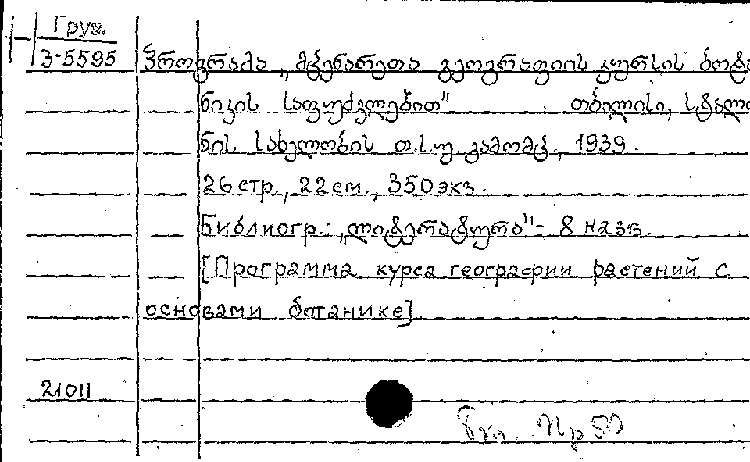 Груз.
3-5595 პროგრამა „მცენარეთა გეოგრაფიის კურსის ბოტა
ნიკის საფუძვლებით" თბილისი, სტალი
ნის სახელობის თ.ს.უ გამომც., 1939.
26 стр., 22 см., 350 экз.
Библиогр.: „ლიტერატურა"- 8 назв.
[Программа курса географии растений с
основами ботанике]
21011